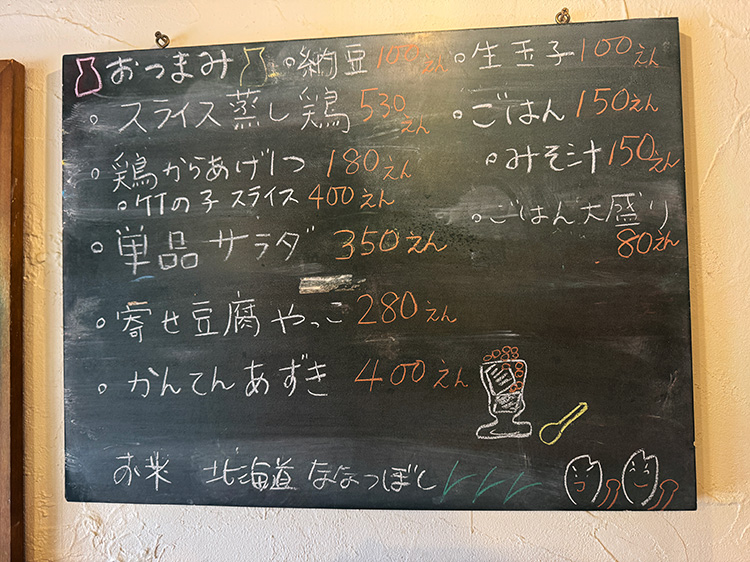 おつまみ ○納豆 100えん ○生玉子 100えん
○スライス蒸し鶏 530えん ○ごはん 150えん
○鶏からあげ1つ 180えん ○みそ汁 150えん
○竹の子スライス 400えん ○ごはん大盛り 80えん
○単品サラダ 350えん
○寄せ豆腐やっこ 280えん
○かんてんあずき 400えん
お米 北海道ななつぼし